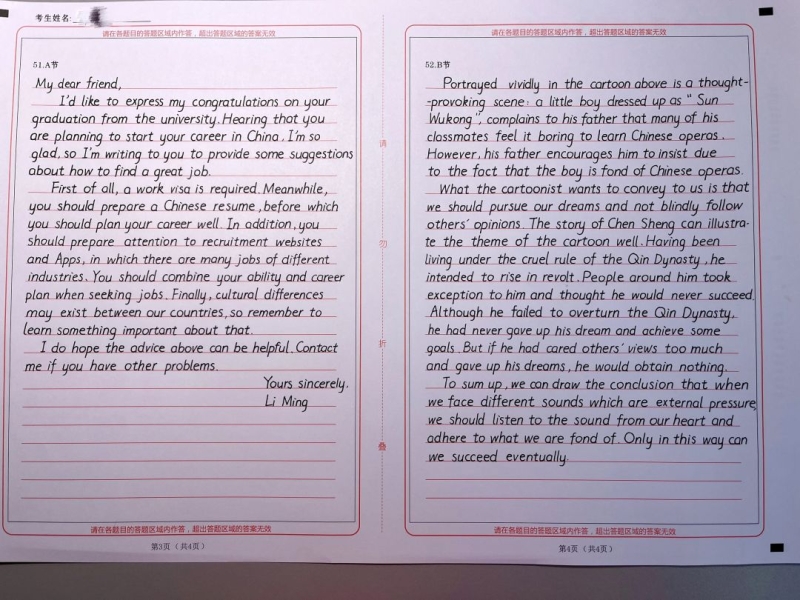 考生姓名:
请在各题目的答题区域内作答，超出答题区域的答案无效
51.A节
My dear friend,
I'd like to express my congratulations on your
graduation from the university. Hearing that you
are planning to start your career in China, I'm so
glad, so I'm writing to you to provide some suggestions
about how to find a great job.
First of all, a work visa is required. Meanwhile,
you should prepare a Chinese resume, before which
you should plan your career well. In addition, you
should prepare attention to recruitment websites
and Apps, in which there are many jobs of different
industries. You should combine your ability and career
plan when seeking jobs. Finally, cultural differences
may exist between our countries, so remember to
learn something important about that.
I do hope the advice above can be helpful. Contact
me if you have other problems.
Yours sincerely.
Li Ming
请在各题目的答题区域内作答，超出答题区域的答案无效
第3页（共4页）
请
勿
折
叠
请在各题目的答题区域内作答，超出答题区域的答案无效
52.B节
Portrayed vividly in the cartoon above is a thought-
-provoking scene: a little boy dressed up as "Sun
Wukong", complains to his father that many of his
classmates feel it boring to learn Chinese operas.
However, his father encourages him to insist due
to the fact that the boy is fond of Chinese operas.
What the cartoonist wants to convey to us is that
we should pursue our dreams and not blindly follow
others' opinions. The story of Chen Sheng can illustra-
te the theme of the cartoon well. Having been
living under the cruel rule of the Qin Dynasty, he
intended to rise in revolt. People around him took
exception to him and thought he would never succeed.
Although he failed to overturn the Qin Dynasty,
he had never gave up his dream and achieve some
goals. But if he had cared others' views too much
and gave up his dreams, he would obtain nothing.
To sum up, we can draw the conclusion that when
we face different sounds which are external pressure,
we should listen to the sound from our heart and
adhere to what we are fond of. Only in this way can
we succeed eventually.
请在各题目的答题区域内作答，超出答题区域的答案无效
第4页（共4页）